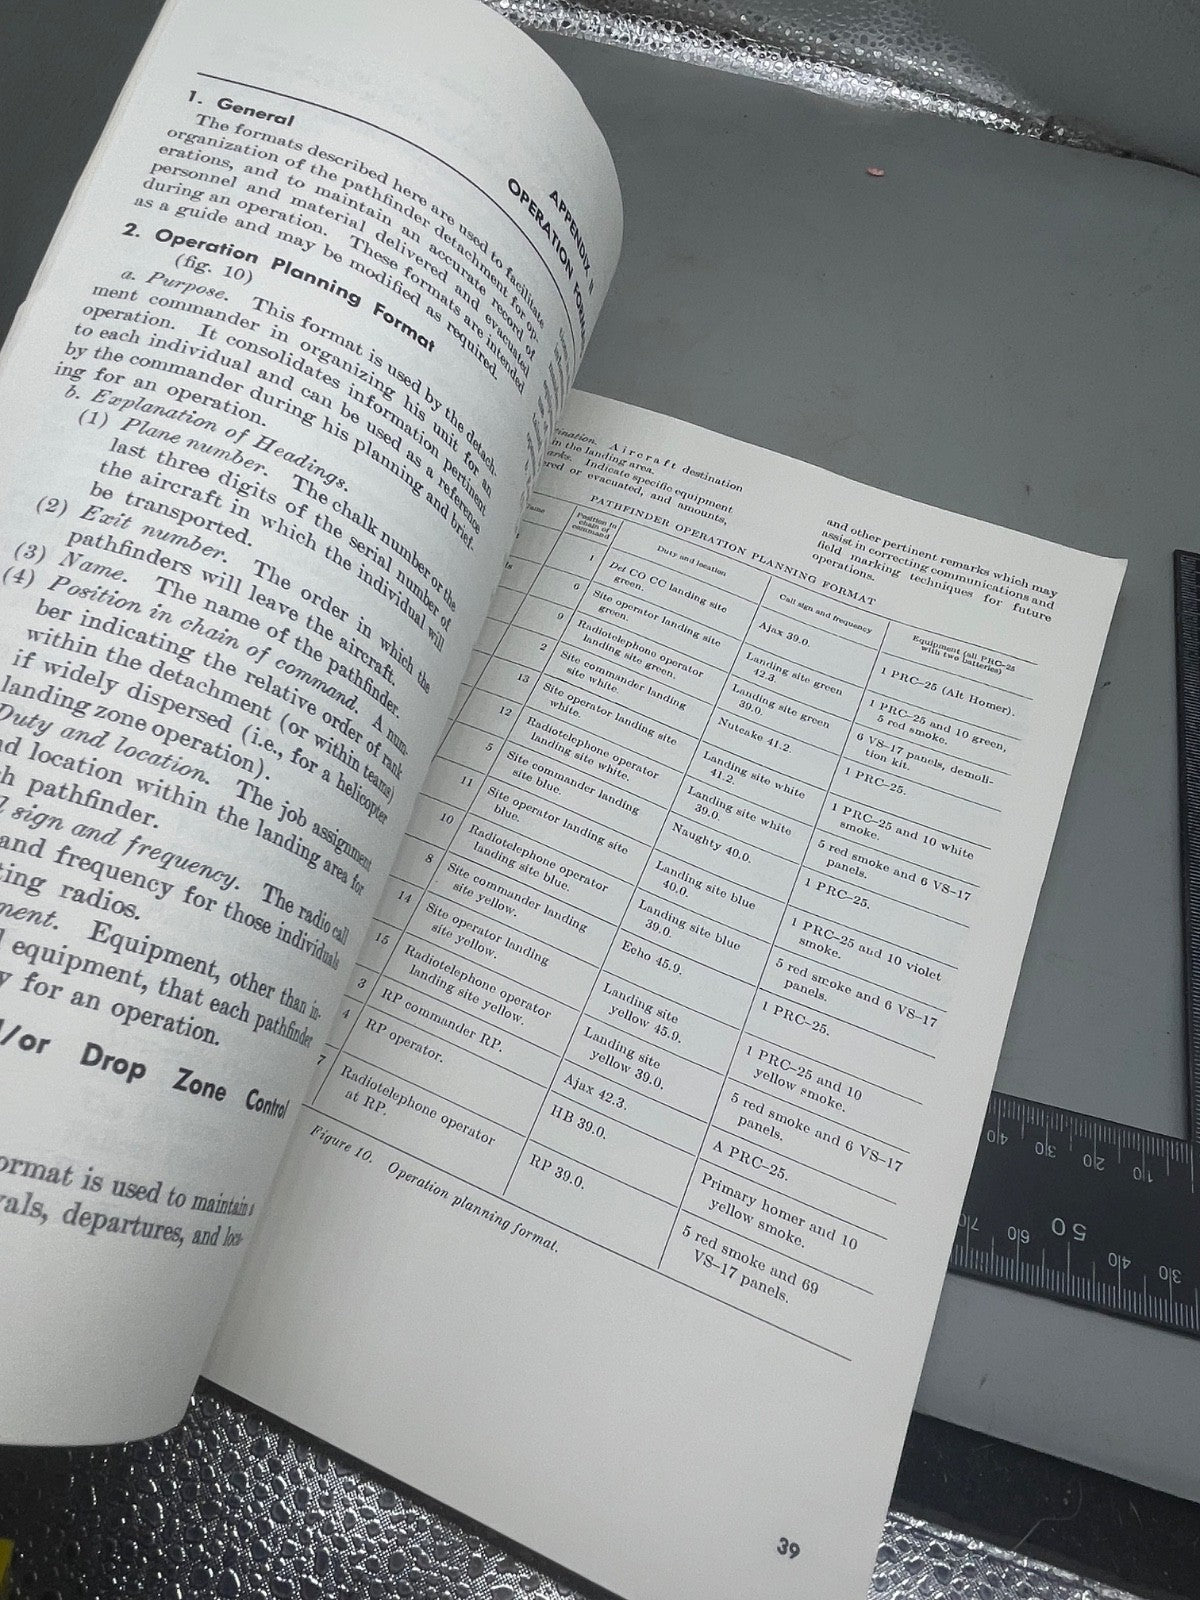 APPENDIX II
OPERATION FORMA
1. General
The formats described here are used to facilitate
organization of the pathfinder detachment for op-
erations, and to maintain an accurate record of
personnel and material delivered and evacuated
during an operation. These formats are intended
as a guide and may be modified as required.
2. Operation Planning Format
(fig. 10)
a. Purpose. This format is used by the detach-
ment commander in organizing his unit for an
operation. It consolidates information pertinent
to each individual and can be used as a reference
by the commander during his planning and brief-
ing for an operation.
b. Explanation of Headings.
(1) Plane number. The chalk number or the
last three digits of the serial number of
the aircraft in which the individual will
be transported.
(2) Exit number. The order in which the
pathfinders will leave the aircraft.
(3) Name. The name of the pathfinder.
(4) Position in chain of command. A num-
ber indicating the relative order of rank
within the detachment (or within teams)
if widely dispersed (i.e., for a helicopter
landing zone operation).
Duty and location. The job assignment
nd location within the landing area for
h pathfinder.
l sign and frequency. The radio call
and frequency for those individuals
ting radios.
ment. Equipment, other than in-
l equipment, that each pathfinder
y for an operation.
l/or Drop Zone Control
ormat is used to maintain a
vals, departures, and loca-
ination. Aircraft destination
in the landing area.
arks. Indicate specific equipment
ered or evacuated, and amounts,
and other pertinent remarks which may
assist in correcting communications and
field marking techniques for future
operations.
PATHFINDER OPERATION PLANNING FORMAT
Name
Position in
chain of
command
Duty and location
Call sign and frequency
Equipment (all PRC-25
with two batteries)
1
Det CO CC landing site
green.
Ajax 39.0.
1 PRC-25 (Alt Homer).
6
Site operator landing site
green.
Landing site green
42.3.
1 PRC-25 and 10 green,
5 red smoke.
9
Radiotelephone operator
landing site green.
Landing site green
39.0.
6 VS-17 panels, demoli-
tion kit.
2
Site commander landing
site white.
Nutcake 41.2.
1 PRC-25.
13
Site operator landing site
white.
Landing site white
41.2.
1 PRC-25 and 10 white
smoke.
12
Radiotelephone operator
landing site white.
Landing site white
39.0.
5 red smoke and 6 VS-17
panels.
5
Site commander landing
site blue.
Naughty 40.0.
1 PRC-25.
11
Site operator landing site
blue.
Landing site blue
40.0.
1 PRC-25 and 10 violet
smoke.
10
Radiotelephone operator
landing site blue.
Landing site blue
39.0.
5 red smoke and 6 VS-17
panels.
8
Site commander landing
site yellow.
Echo 45.9.
1 PRC-25.
14
Site operator landing
site yellow.
Landing site
yellow 45.9.
1 PRC-25 and 10
yellow smoke.
15
Radiotelephone operator
landing site yellow.
Landing site
yellow 39.0.
5 red smoke and 6 VS-17
panels.
3
RP commander RP.
Ajax 42.3.
A PRC-25.
4
RP operator.
HB 39.0.
Primary homer and 10
yellow smoke.
7
Radiotelephone operator
at RP.
RP 39.0.
5 red smoke and 69
VS-17 panels.
Figure 10. Operation planning format.
39
40 30 20 10
70 60 50 40 30